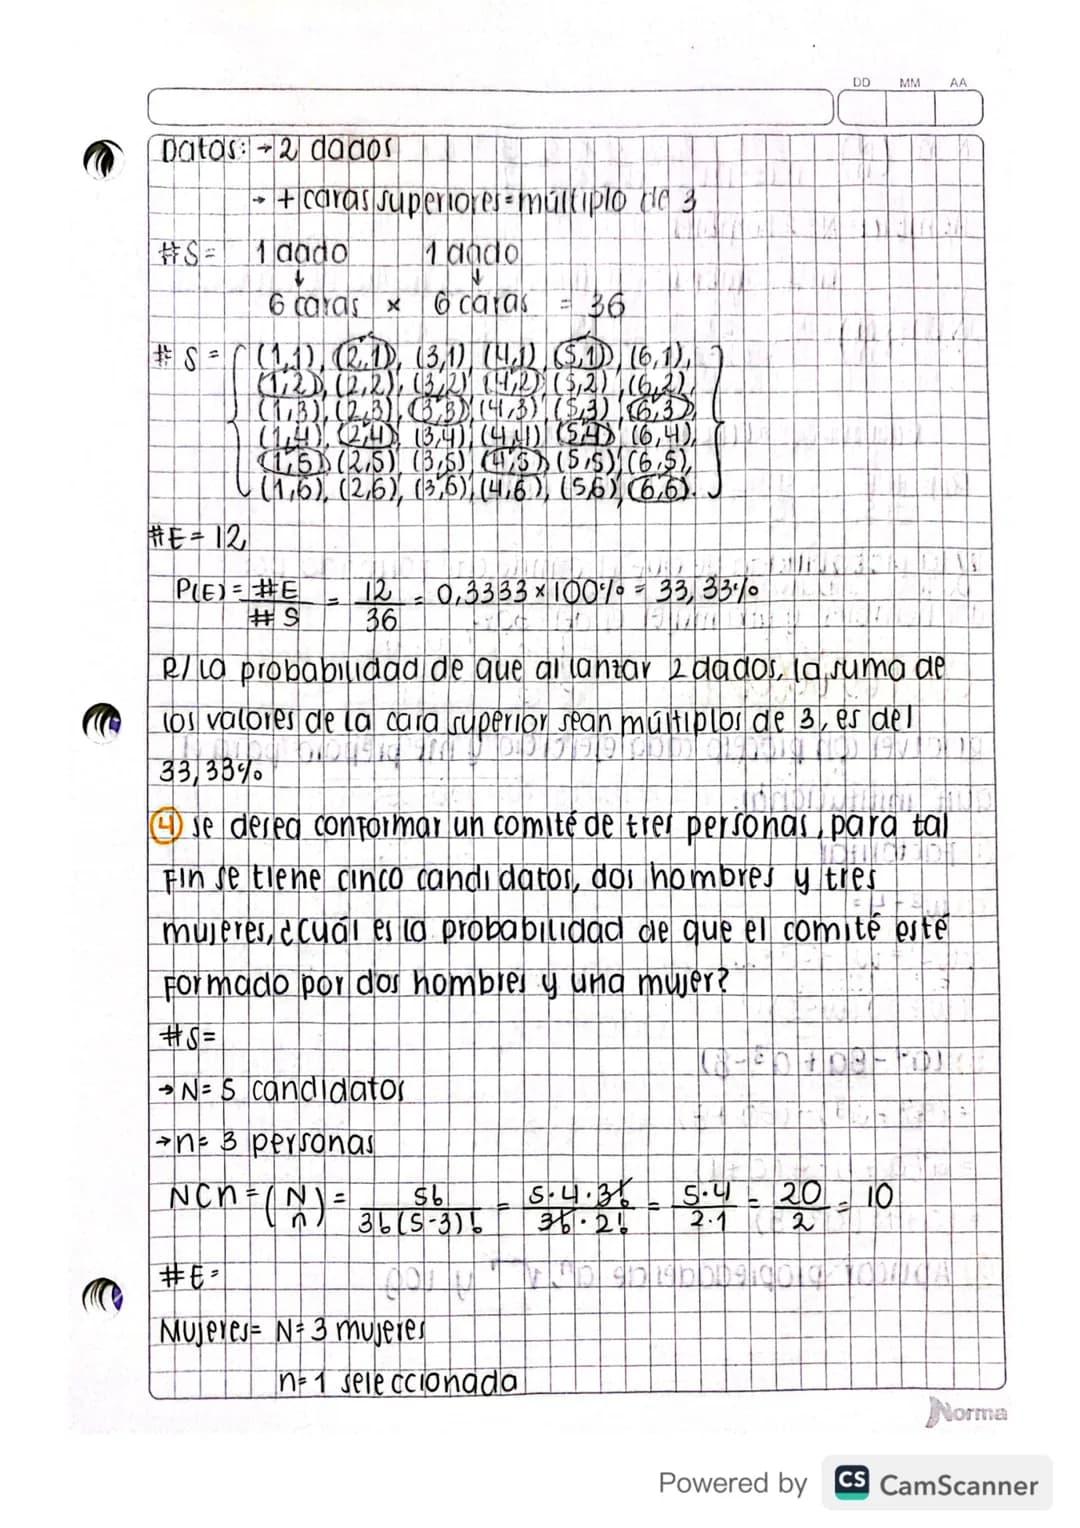 DD MM AA
Datos: → 2 dados
→ + caras superiores = múltiplo de 3
#S = 1 dado 1 dado
↓ ↓
6 caras x 6 caras = 36
# S = { (1,1), (2,1), (3,1), (4,1), (5,1), (6,1),
(1,2), (2,2), (3,2), (4,2), (5,2), (6,2),
(1,3), (2,3), (3,3), (4,3), (5,3), (6,3),
(1,4), (2,4), (3,4), (4,4), (5,4), (6,4),
(1,5), (2,5), (3,5), (4,5), (5,5), (6,5),
(1,6), (2,6), (3,6), (4,6), (5,6), (6,6). }
#E = 12
P(E) = #E / #S = 12 / 36 = 0,3333 x 100% = 33,33%
R/ La probabilidad de que al lanzar 2 dados, la suma de
los valores de la cara superior sean múltiplos de 3, es del
33,33%
4 Se desea conformar un comité de tres personas, para tal
fin se tiene cinco candidatos, dos hombres y tres
mujeres, ¿Cuál es la probabilidad de que el comité esté
formado por dos hombres y una mujer?
#S=
→ N= 5 candidatos
→ n= 3 personas
NCn = (N n) = 5! / 3!(5-3)! = 5·4·3! / 3!·2! = 5·4 / 2·1 = 20 / 2 = 10
#E=
Mujeres= N= 3 mujeres
n= 1 seleccionada
Norma
Powered by CS CamScanner